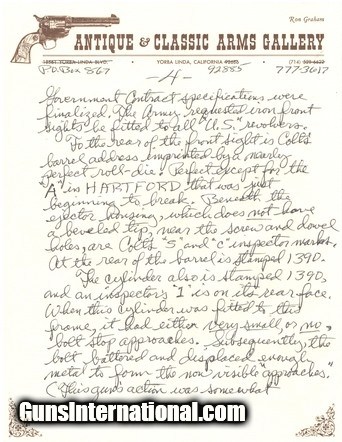 Ron Graham
ANTIQUE & CLASSIC ARMS GALLERY
YORBA LINDA BLVD. • YORBA LINDA, CALIFORNIA 92686 • (714)
P.O. Box 867 92885 777-3617
-4-
Government Contract specifications were
finalized. The Army requested iron front
sights be fitted to all "U.S." revolvers.
To the rear of the front sight is Colt's
barrel address imprinted by a nearly
perfect roll-die. Perfect except for the
"A" in HARTFORD that was just
beginning to break. Beneath the
ejector housing, which does not have
a beveled tip, near the screw and dowel
holes, are Colt's "S" and "C" inspector marks.
At the rear of the barrel is stamped 1390.
The cylinder also is stamped 1390,
and an inspector's "1" is on its rear face.
When this cylinder was fitted to this
frame, it had either very small, or no,
bolt stop approaches. Subsequently, the
bolt battered and displaced enough
metal to form the now visible "approaches."
(This gun's action was somewhat
GunsInternational.com